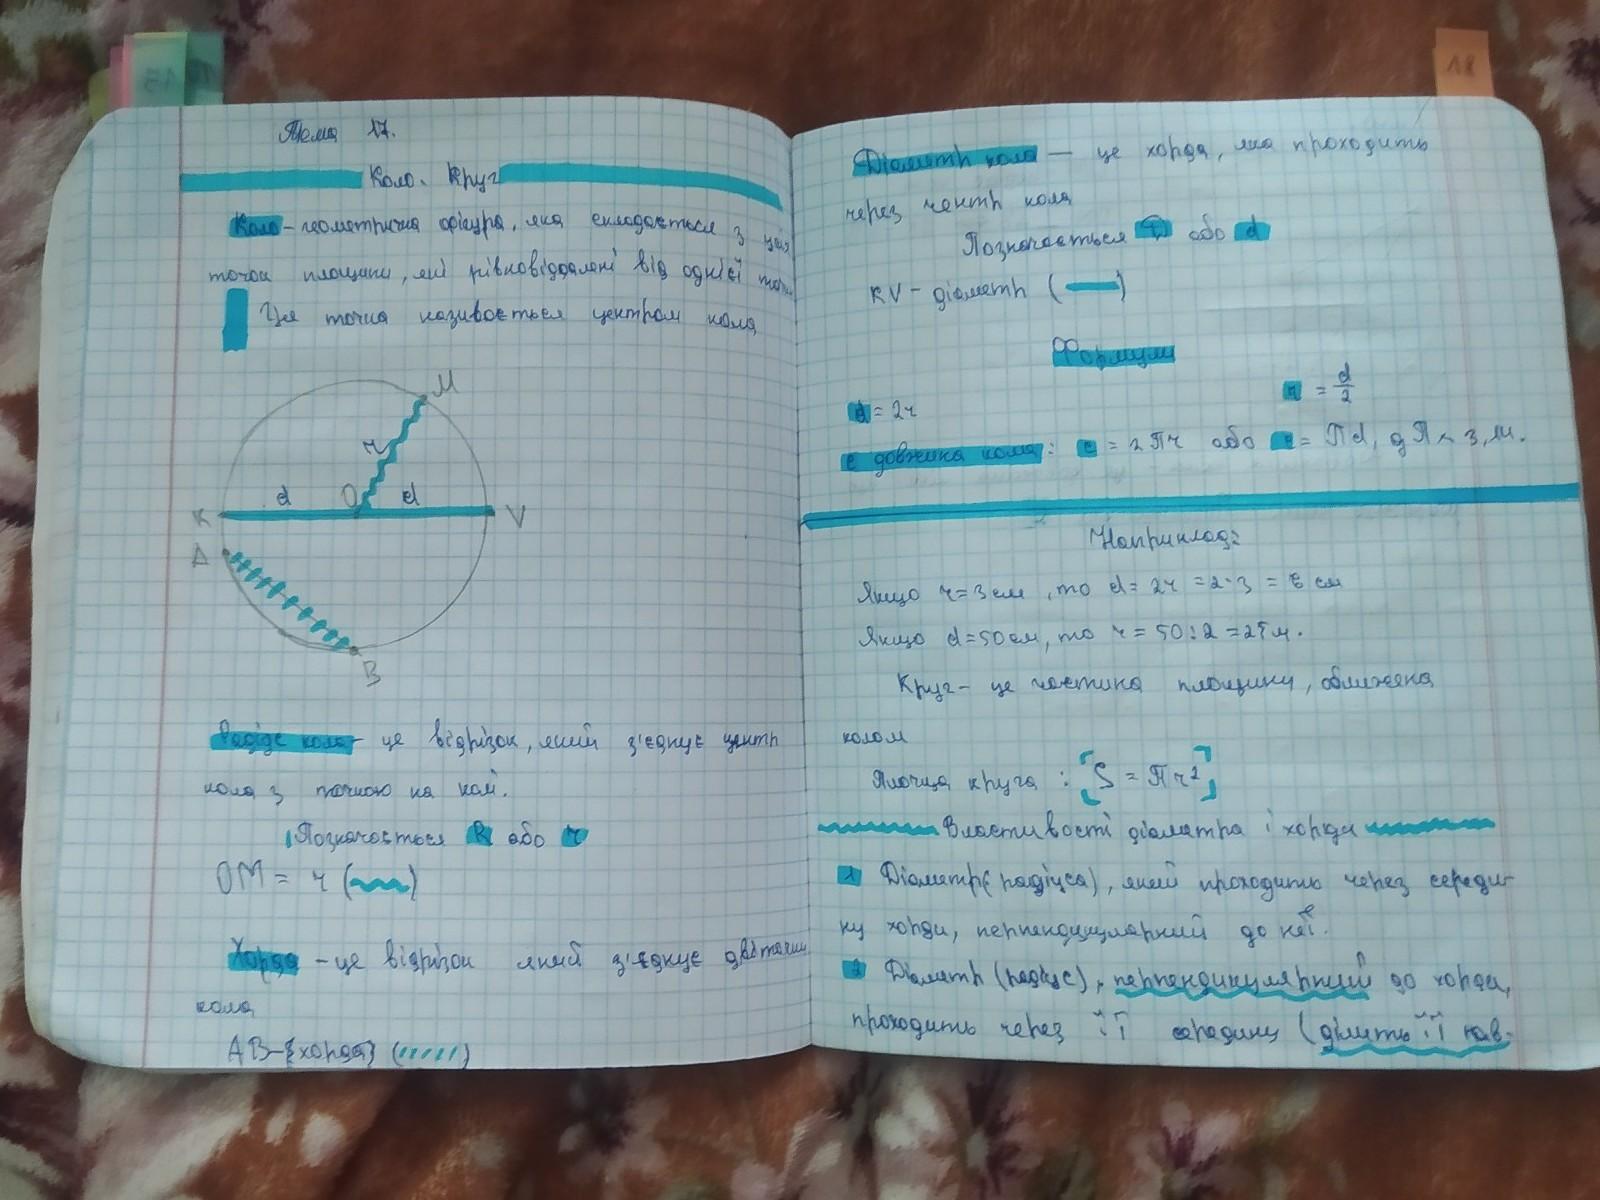 Тема 17.
Коло. Круг
Коло - геометрична фігура, яка складається з усіх
точок площини, які рівновіддалені від однієї точки
Ця точка називається центром кола
M
r
d O d
K V
A
B
Радіус кола - це відрізок, який з'єднує центр
кола з точкою на колі.
Позначається R або r
OM = r ( )
Хорда - це відрізок який з'єднує дві точки
кола
AB-{хорда} ( )
18
Діаметр кола — це хорда, яка проходить
через центр кола
Позначається D або d
KV - діаметр ( )
Формули
d = 2r r = d/2
C довжина кола: c = 2πr або c = πd, д π ≈ 3,14.
Наприклад:
Якщо r = 3 см, то d = 2r = 2·3 = 6 см
Якщо d = 50 см, то r = 50:2 = 25 м.
Круг - це частина площини, обмежена
колом
Площа круга : [S = πr²]
Властивості діаметра і хорди
1 Діаметр(радіуса), який проходить через середи-
ну хорди, перпендикулярний до неї.
2 Діаметр (радіус), перпендикулярний до хорди,
проходить через її середину (ділить її нав-